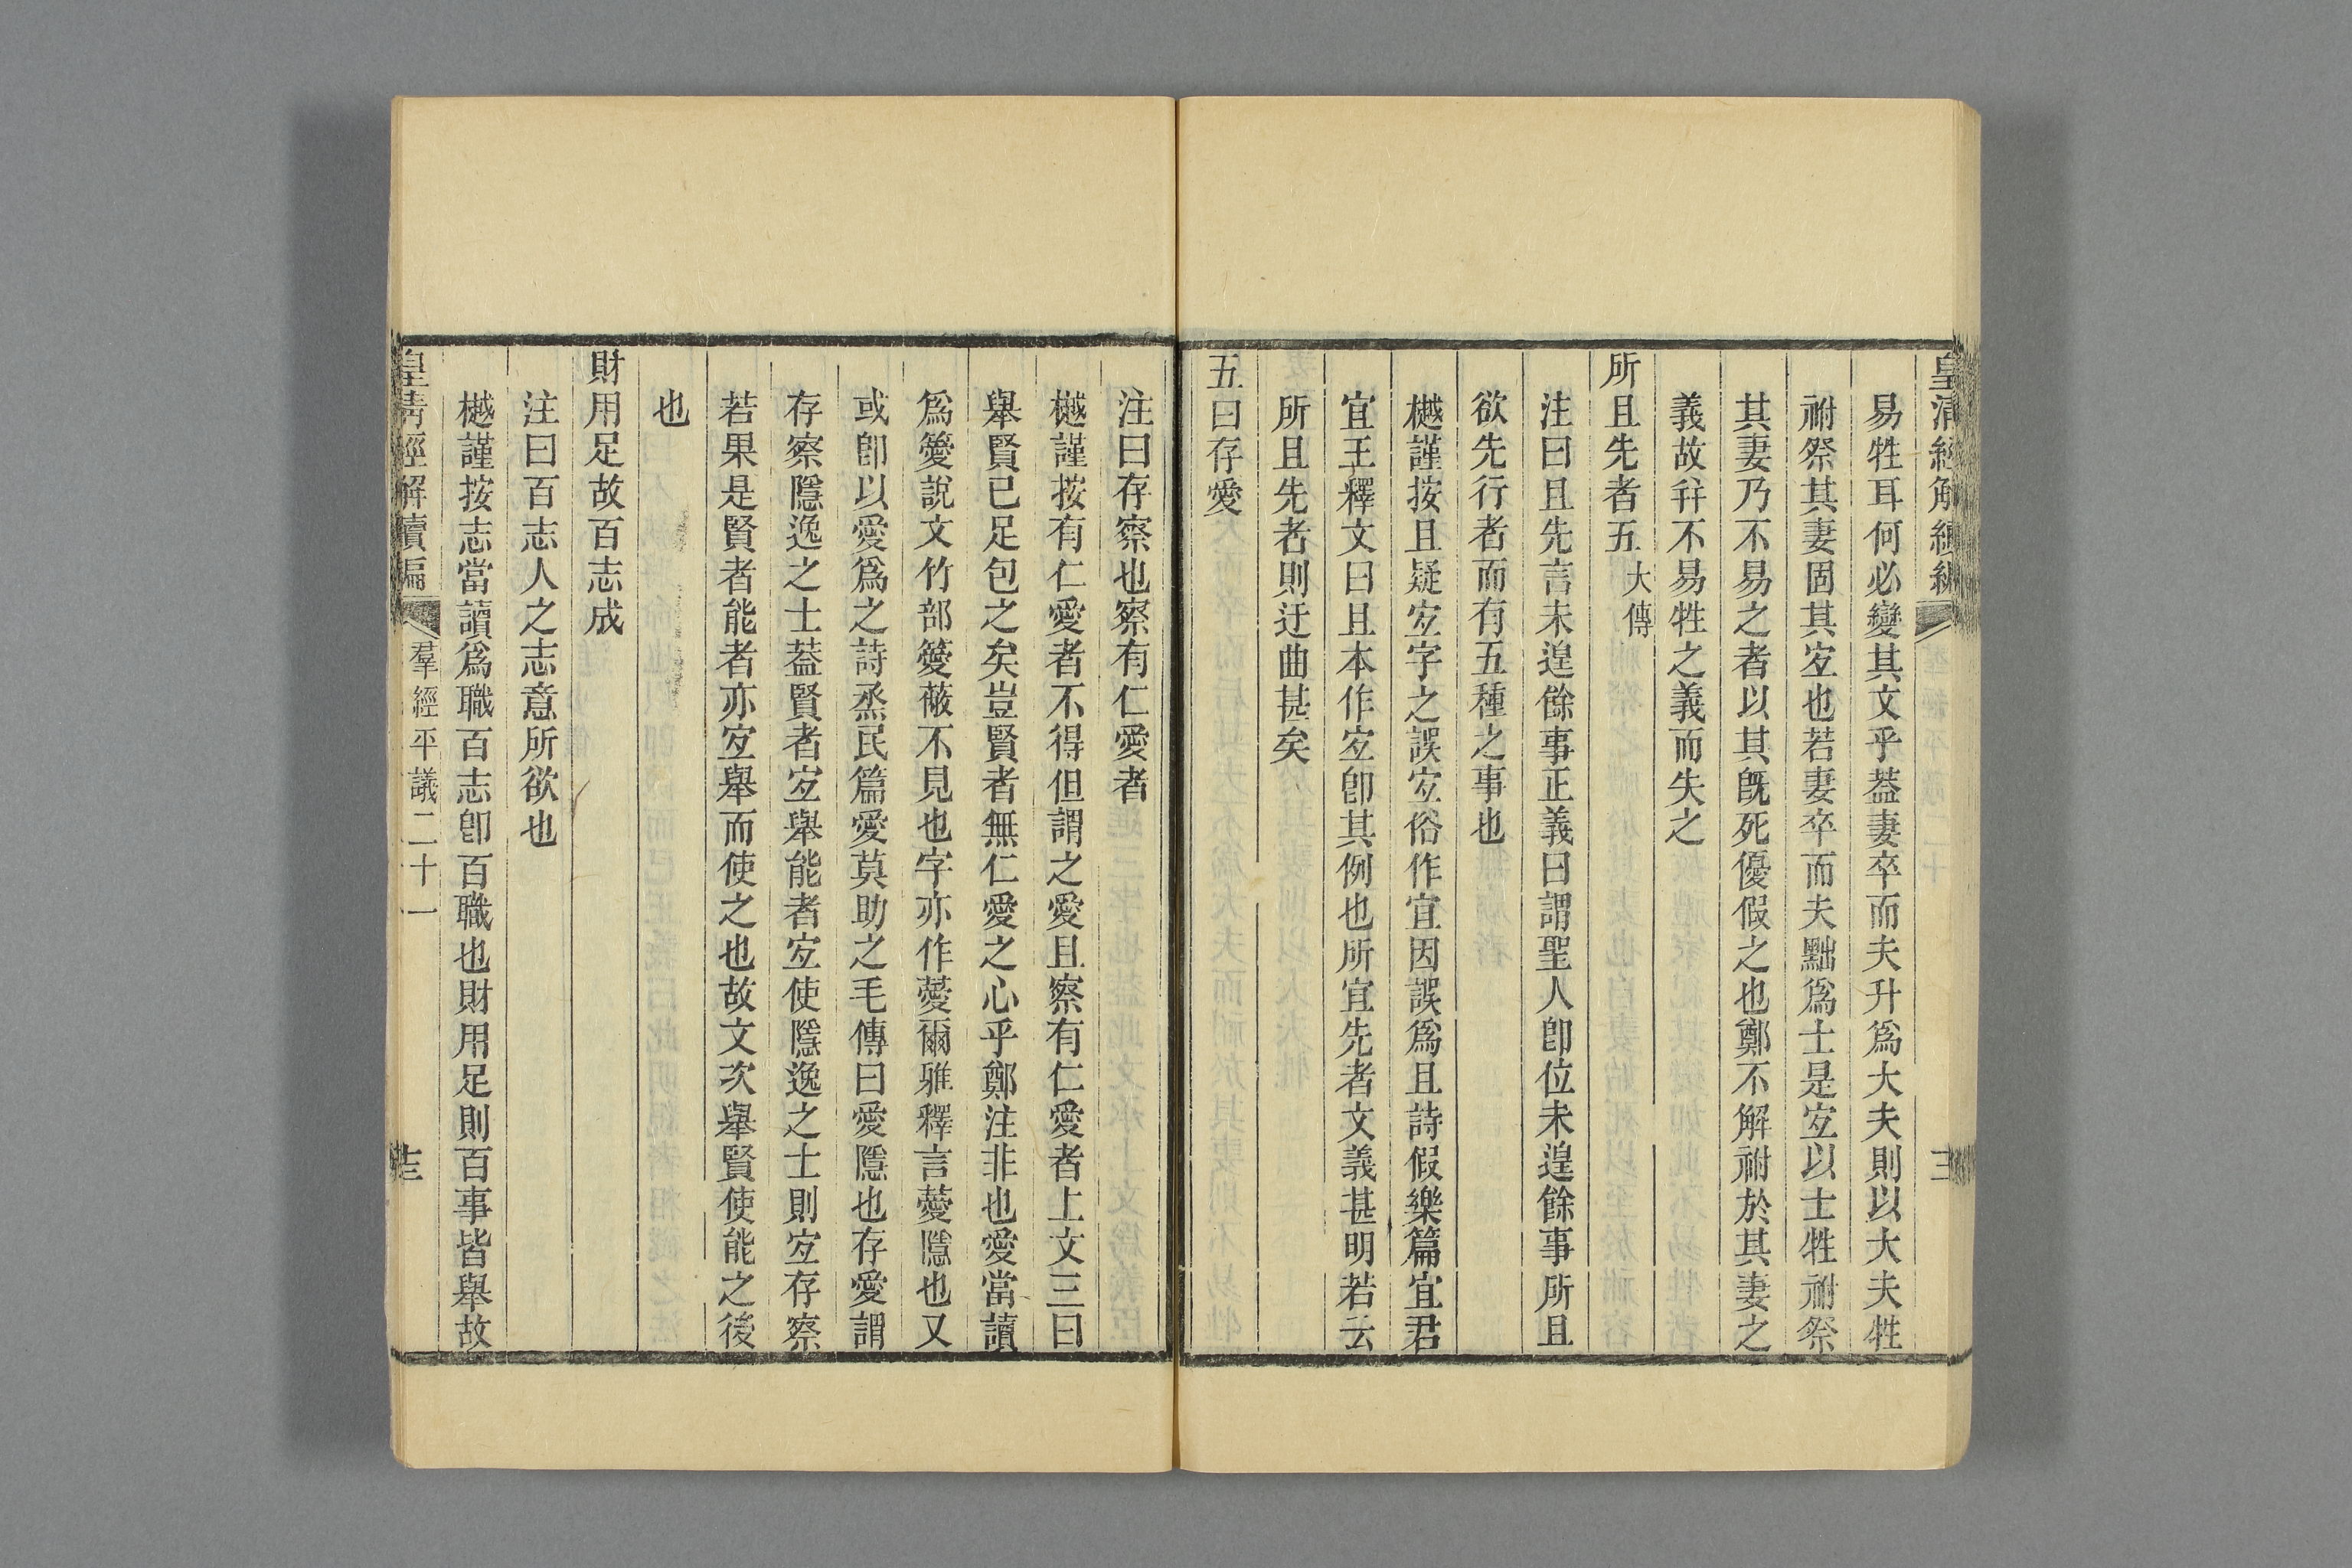 皇清經解續編
易牲耳何必變其文乎葢妻卒而夫升爲大夫則以大夫牲
祔祭其妻固其㝐也若妻卒而夫黜爲士是㝐以士牲祔祭
其妻乃不易之者以其旣死優假之也鄭不解祔於其妻之
義故幷不易牲之義而失之
所且先者五大傳
注曰且先言未遑餘事正義曰謂聖人卽位未遑餘事所且
欲先行者而有五種之事也
樾謹按且疑㝐字之誤㝐俗作宜因誤爲且詩假樂篇宜君
宜王釋文曰且本作㝐卽其例也所宜先者文義甚明若云
所且先者則迂曲甚矣
五曰存愛
注曰存察也察有仁愛者
樾謹按有仁愛者不得但謂之愛且察有仁愛者上文三曰
舉賢已足包之矣豈賢者無仁愛之心乎鄭注非也愛當讀
爲籉說文竹部籉蔽不見也字亦作薆爾雅釋言薆隱也又
或卽以愛爲之詩烝民篇愛莫助之毛傳曰愛隱也存愛謂
存察隱逸之士葢賢者㝐舉能者㝐使隱逸之士則㝐存察
若果是賢者能者亦㝐舉而使之也故文次舉賢使能之後
也
財用足故百志成
注曰百志人之志意所欲也
樾謹按志當讀爲職百志卽百職也財用足則百事皆舉故
皇清經解續編
羣經平議二十一